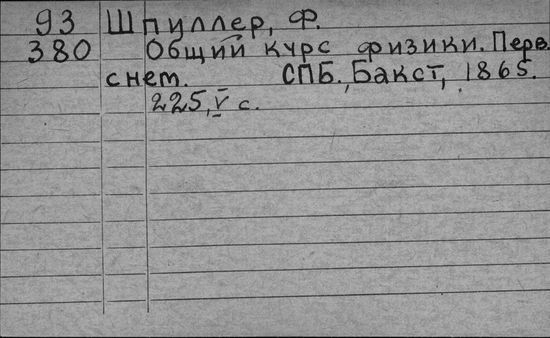 93 Шпуллер, Ф.
380 Общий курс физики. Перв.
с нет. СПБ., Бакст, 1865.
225, V с.